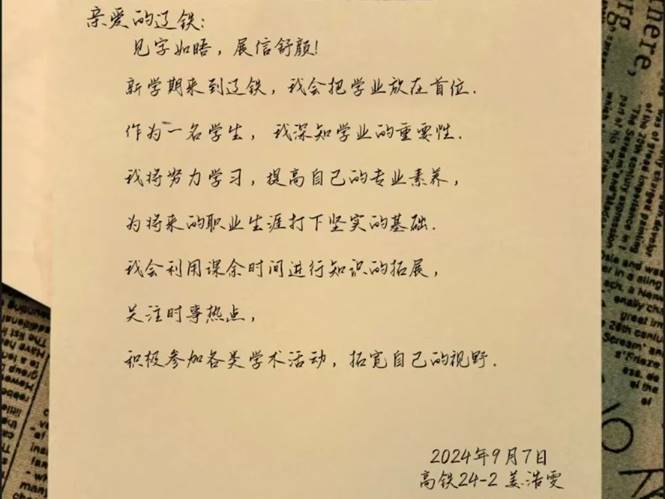 亲爱的辽铁:
见字如晤，展信舒颜!
新学期来到辽铁，我会把学业放在首位.
作为一名学生，我深知学业的重要性.
我将努力学习，提高自己的专业素养，
为将来的职业生涯打下坚实的基础.
我会利用课余时间进行知识的拓展，
关注时事热点，
积极参加各类学术活动，拓宽自己的视野.
2024年9月7日
高铁24-2 姜浩雯